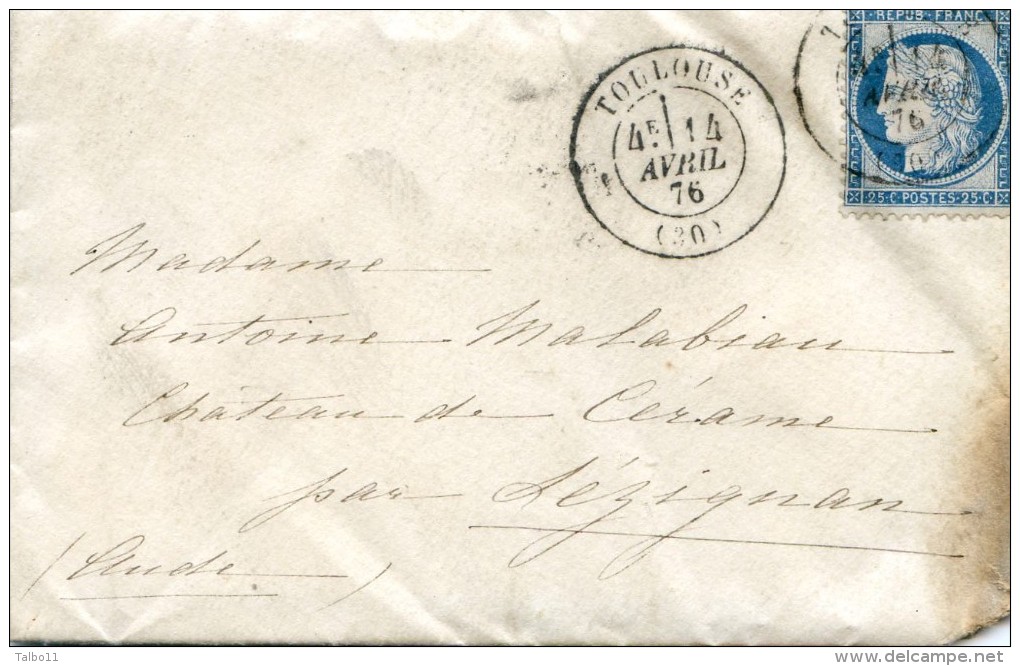 REPUB. FRANC
14
AVRIL
76
25. C POSTES 25. C.
TOULOUSE
4E 14
AVRIL
76
(30)
Madame
Antoine Malabiau
Château de Cérame
par Lézignan
(Aude)
Talbo11
www.delcampe.net